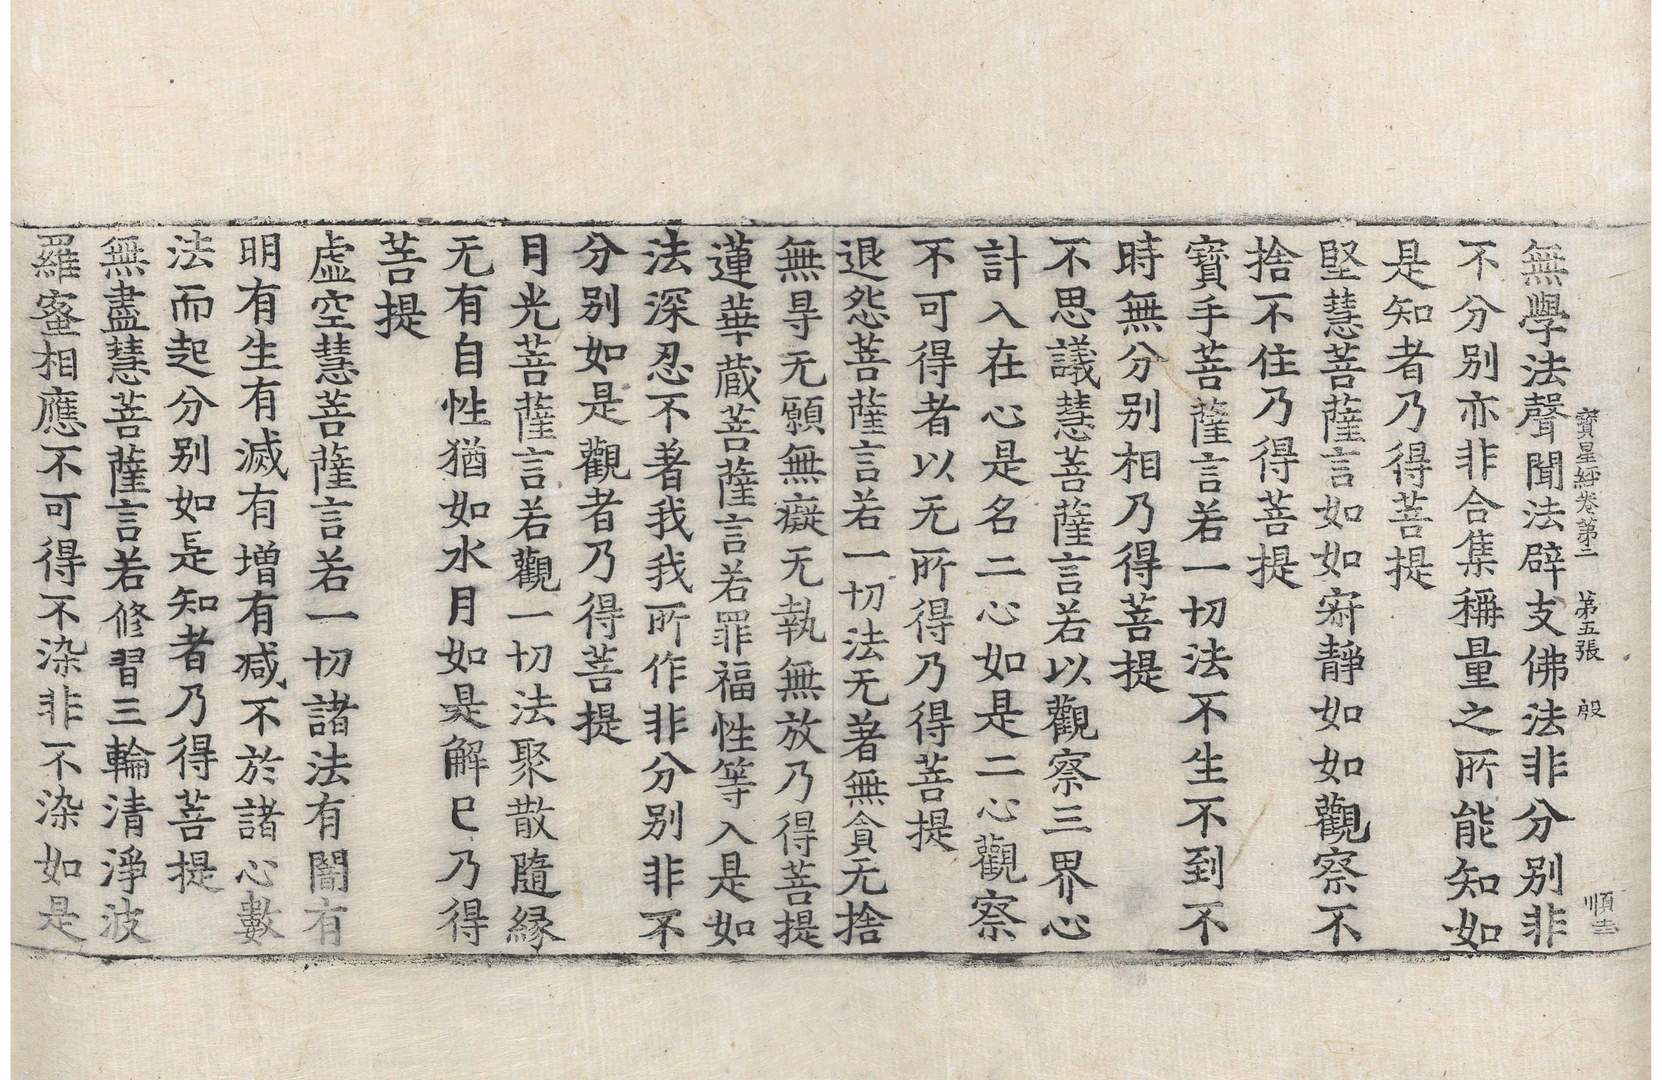 寶星經卷第二 第五張 殷 順
無學法聲聞法辟支佛法非分別非
不分別亦非合集稱量之所能知如
是知者乃得菩提
堅慧菩薩言如如寂靜如如觀察不
捨不住乃得菩提
寶手菩薩言若一切法不生不到不
時無分別相乃得菩提
不思議慧菩薩言若以觀察三界心
計入在心是名二心如是二心觀察
不可得者以无所得乃得菩提
退怨菩薩言若一切法无著無貪无捨
無㝵无願無癡无執無放乃得菩提
蓮華蔵菩薩言若罪福性等入是如
法深忍不著我我所作非分別非不
分別如是觀者乃得菩提
月光菩薩言若觀一切法聚散隨縁
无有自性猶如水月如是解已乃得
菩提
虛空慧菩薩言若一切諸法有闇有
明有生有滅有増有减不於諸心數
法而起分別如是知者乃得菩提
無盡慧菩薩言若修習三輪清淨波
羅蜜相應不可得不染非不染如是